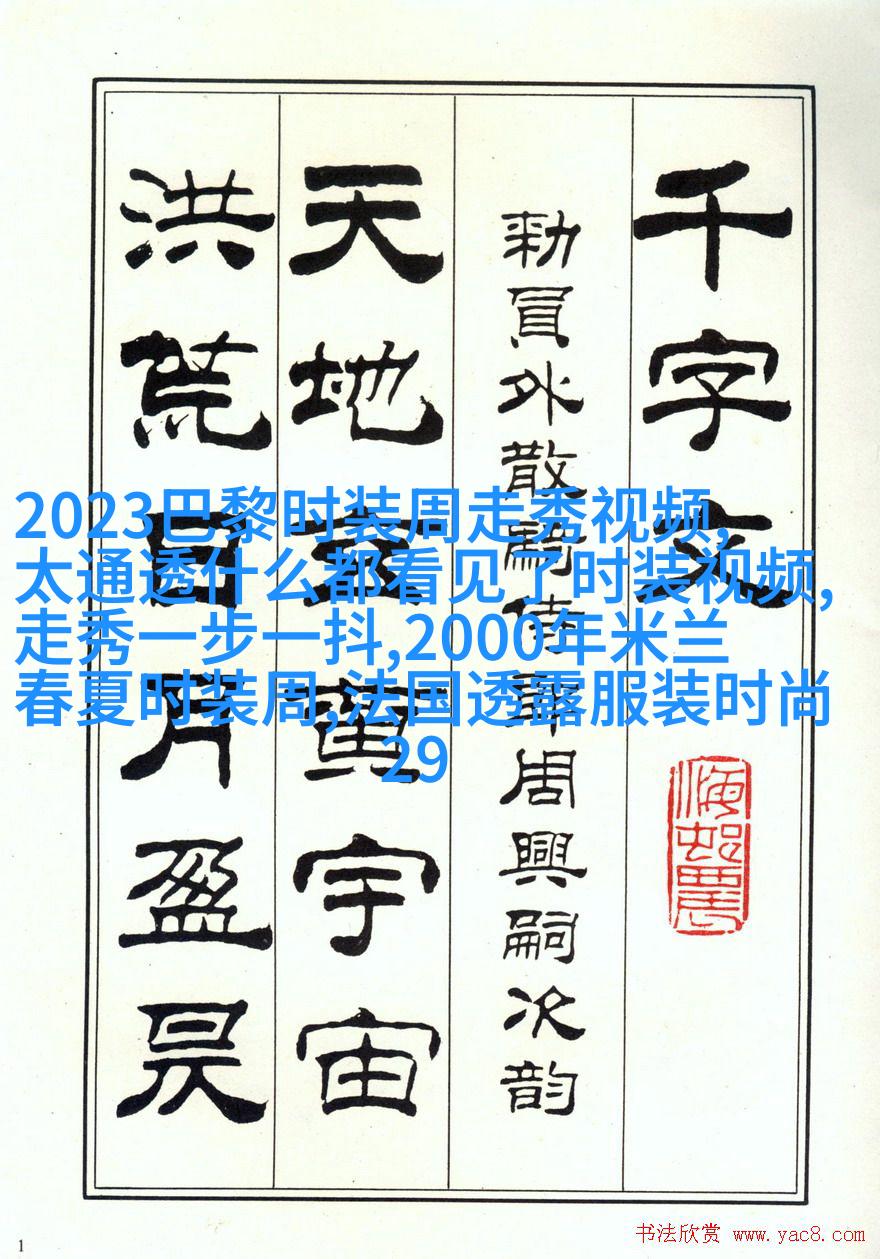 千字文
勑員外散騎侍郎周興嗣次韵
天地玄黃宇宙
洪荒日月盈昃
2023巴黎时装周走秀视频,
太通透什么都看见了时装视频,
走秀一步一抖,2000年米兰
春夏时装周,法国透露服装时尚
29
1
书法欣赏 www.yac8.com